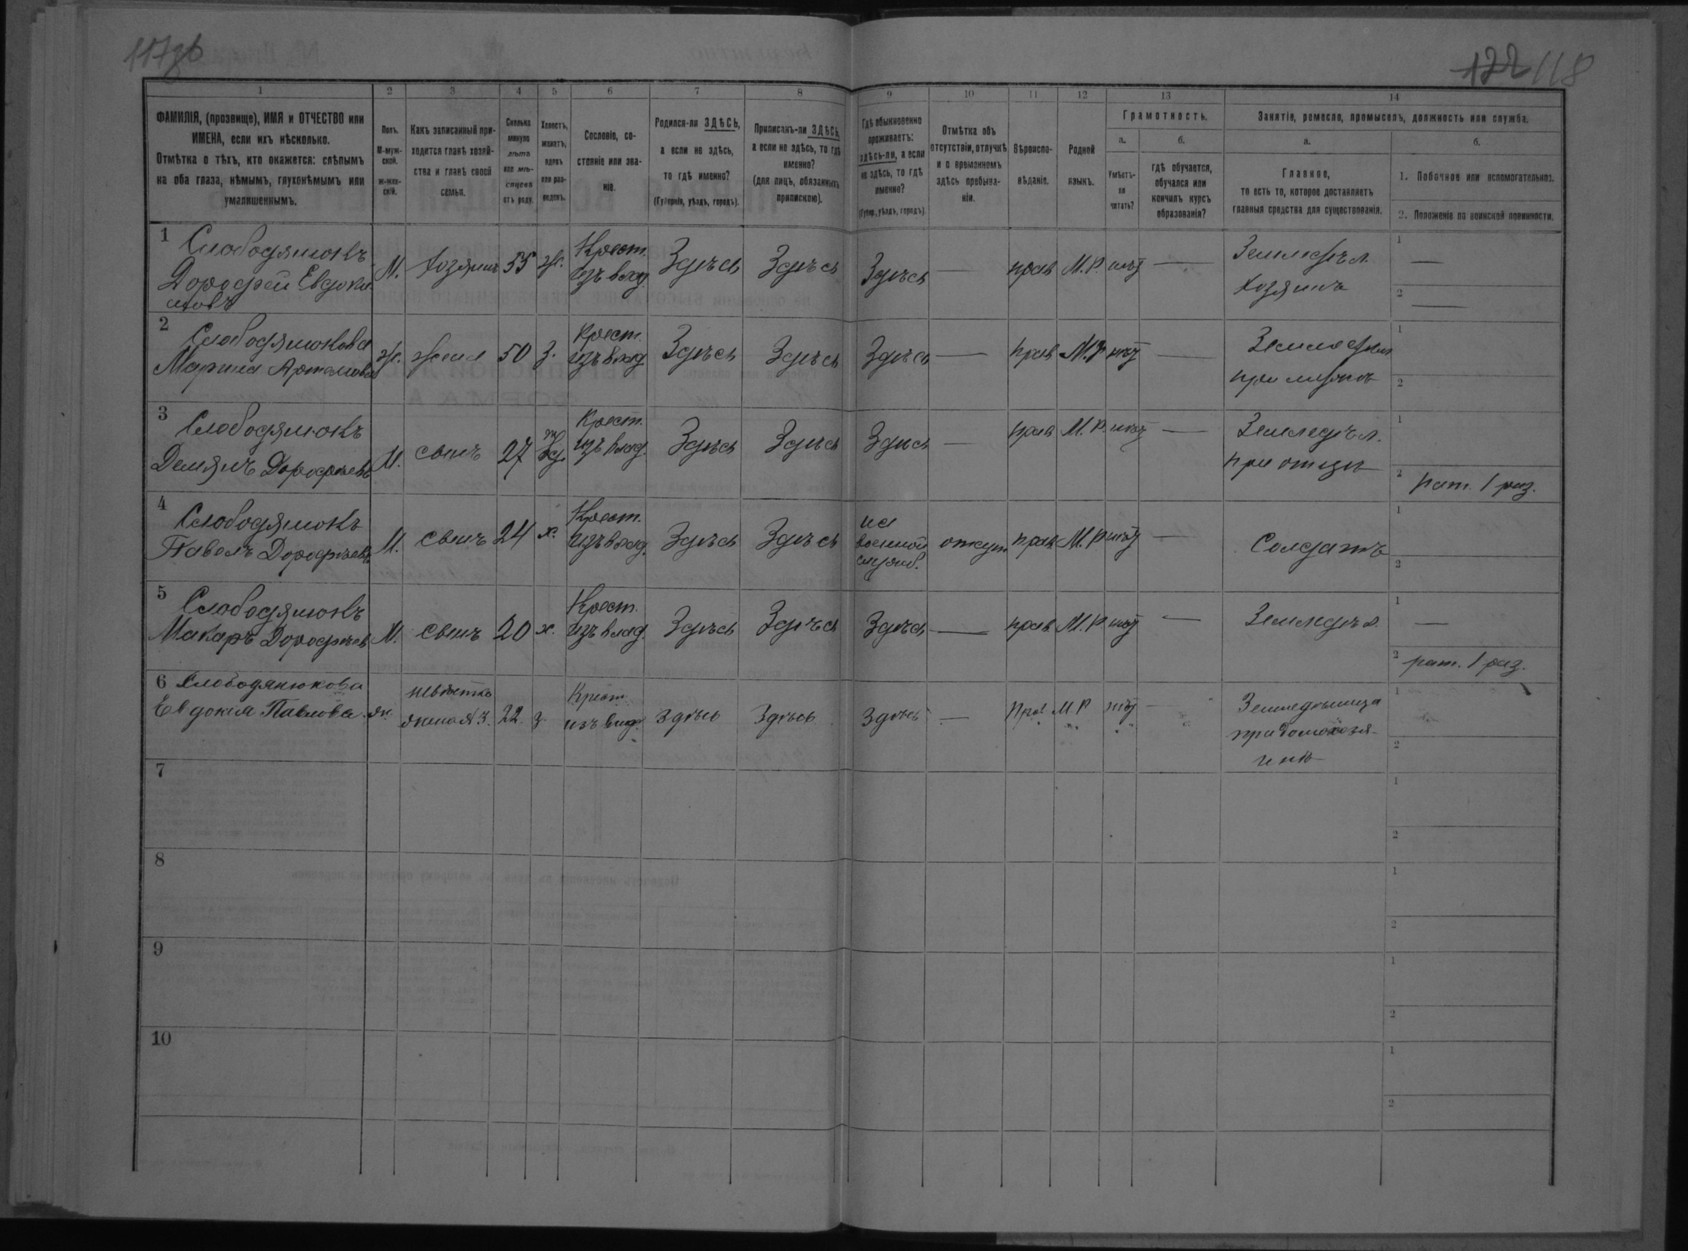 117об
122 118
1 2 3 4 5 6 7 8 9 10 11 12 13 14
ФАМИЛІЯ, (прозвище), ИМЯ и ОТЧЕСТВО или
ИМЕНА, если ихъ нѣсколько.
Отмѣтка о тѣхъ, кто окажется: слѣпымъ
на оба глаза, нѣмымъ, глухонѣмымъ или
умалишеннымъ.
Полъ.
М-муж-
ской.
ж-жен-
скій.
Какъ записанный при-
ходится главѣ хозяй-
ства и главѣ своей
семьи.
Сколько
минуло
лѣтъ
или мѣ-
сяцевъ
отъ роду.
Холостъ,
женатъ,
вдовъ
или раз-
веденъ.
Сословіе, со-
стояніе или зва-
ніе.
Родился-ли ЗДѢСЬ,
а если не здѣсь,
то гдѣ именно?
(Губернія, уѣздъ, городъ).
Приписанъ-ли ЗДѢСЬ,
а если не здѣсь, то гдѣ
именно?
(для лицъ, обязанныхъ
припискою).
Гдѣ обыкновенно
проживаетъ:
здѣсь-ли, а если
не здѣсь, то гдѣ
именно?
(Губер., уѣздъ, городъ).
Отмѣтка объ
отсутствіи, отлучкѣ
и о временномъ
здѣсь пребыва-
ніи.
Вѣроиспо-
вѣданіе.
Родной
языкъ.
Грамотность.
а. б.
Умѣетъ-
ли
читать?
гдѣ обучается,
обучался или
кончилъ курсъ
образованія?
Занятіе, ремесло, промыселъ, должность или служба.
а. б.
Главное,
то есть то, которое доставляетъ
главныя средства для существованія.
1. Побочное или вспомогательное.
2. Положеніе по воинской повинности.
1 Слободянюкъ
Дорофей Евдоки
мовъ
М. хозяинъ 55 ж. Крест.
изъ влад.
Здѣсь Здѣсь Здѣсь — прав М.Р. нѣт —
Земледѣл.
хозяинъ
1 —
2 —
2 Слободянюкова
Марина
ж. жена 50 з. Крест.
изъ влад.
Здѣсь Здѣсь Здѣсь — прав М.Р. нѣт —
при мужѣ
1
2
3 Слободянюкъ
Демянъ Дорофѣевъ
М. сынъ 27 Крест.
изъ влад.
Здѣсь Здѣсь Здѣсь — прав М.Р. нѣт —
Земледѣл.
при отцѣ
1
2 рат. 1 раз.
4 Слободянюкъ
Павелъ Дорофѣевъ
М. сынъ 24 х. Крест.
изъ влад.
Здѣсь Здѣсь на
военной
служб.
отсут прав М.Р. нѣт —
Солдатъ
1
2
5 Слободянюкъ
Макаръ Дорофѣевъ
М. сынъ 20 х. Крест.
изъ влад.
Здѣсь Здѣсь Здѣсь — прав М.Р. нѣт —
Земледѣл.
1 —
2 рат. 1 раз.
6 Слободянюкова
Евдокія Павлова
ж. невѣстка
жена №3. 22 з. Крест.
изъ влад.
здѣсь здѣсь здѣсь — Прав М.Р. нѣт —
1
2
7 1
2
8 1
2
9 1
2
10 1
2